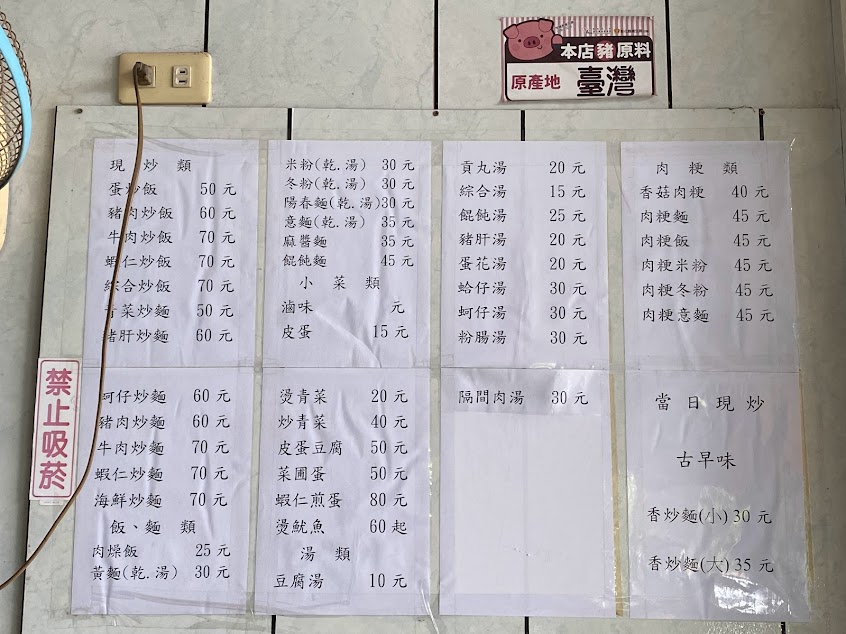 本店豬原料
原產地 臺灣
禁止吸菸
現炒類
蛋炒飯 50元
豬肉炒飯 60元
牛肉炒飯 70元
蝦仁炒飯 70元
綜合炒飯 70元
青菜炒麵 50元
豬肝炒麵 60元
蚵仔炒麵 60元
豬肉炒麵 60元
牛肉炒麵 70元
蝦仁炒麵 70元
海鮮炒麵 70元
飯、麵類
肉燥飯 25元
黃麵(乾.湯) 30元
米粉(乾.湯) 30元
冬粉(乾.湯) 30元
陽春麵(乾.湯)30元
意麵(乾.湯) 35元
麻醬麵 35元
餛飩麵 45元
小菜類
滷味 元
皮蛋 15元
燙青菜 20元
炒青菜 40元
皮蛋豆腐 50元
菜圃蛋 50元
蝦仁煎蛋 80元
燙魷魚 60起
湯類
豆腐湯 10元
貢丸湯 20元
綜合湯 15元
餛飩湯 25元
豬肝湯 20元
蛋花湯 20元
蛤仔湯 30元
蚵仔湯 30元
粉腸湯 30元
隔間肉湯 30元
肉粳類
香菇肉粳 40元
肉粳麵 45元
肉粳飯 45元
肉粳米粉 45元
肉粳冬粉 45元
肉粳意麵 45元
當日現炒
古早味
香炒麵(小) 30元
香炒麵(大) 35元